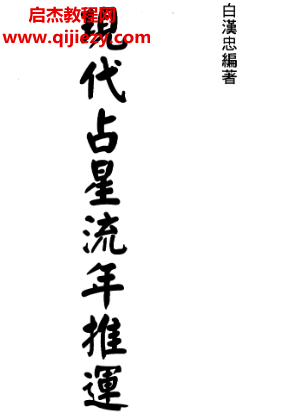 启杰教程网
www.qijiezy.com
白漢忠編著
現代占星流年推運